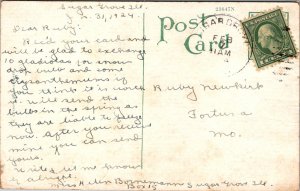 Sugar Grove Ill.
Jan. 31, 1924.
Dear Ruby:
Rec'd your card and
will be glad to exchange
10 gladiolas for snow
drop bulb and some
crysanthemums if
you think it is worth
it. Will send the
bulbs in the spring as
they are liable to freeze
now. After you receive
mine you can send
yours.
Write & let me know
if alright.
Miss Helen Bornemann Sugar Grove Ill.
Box 15
Post
Card
FEB
1 AM
Ruby Newhert
Fortuna
Mo.